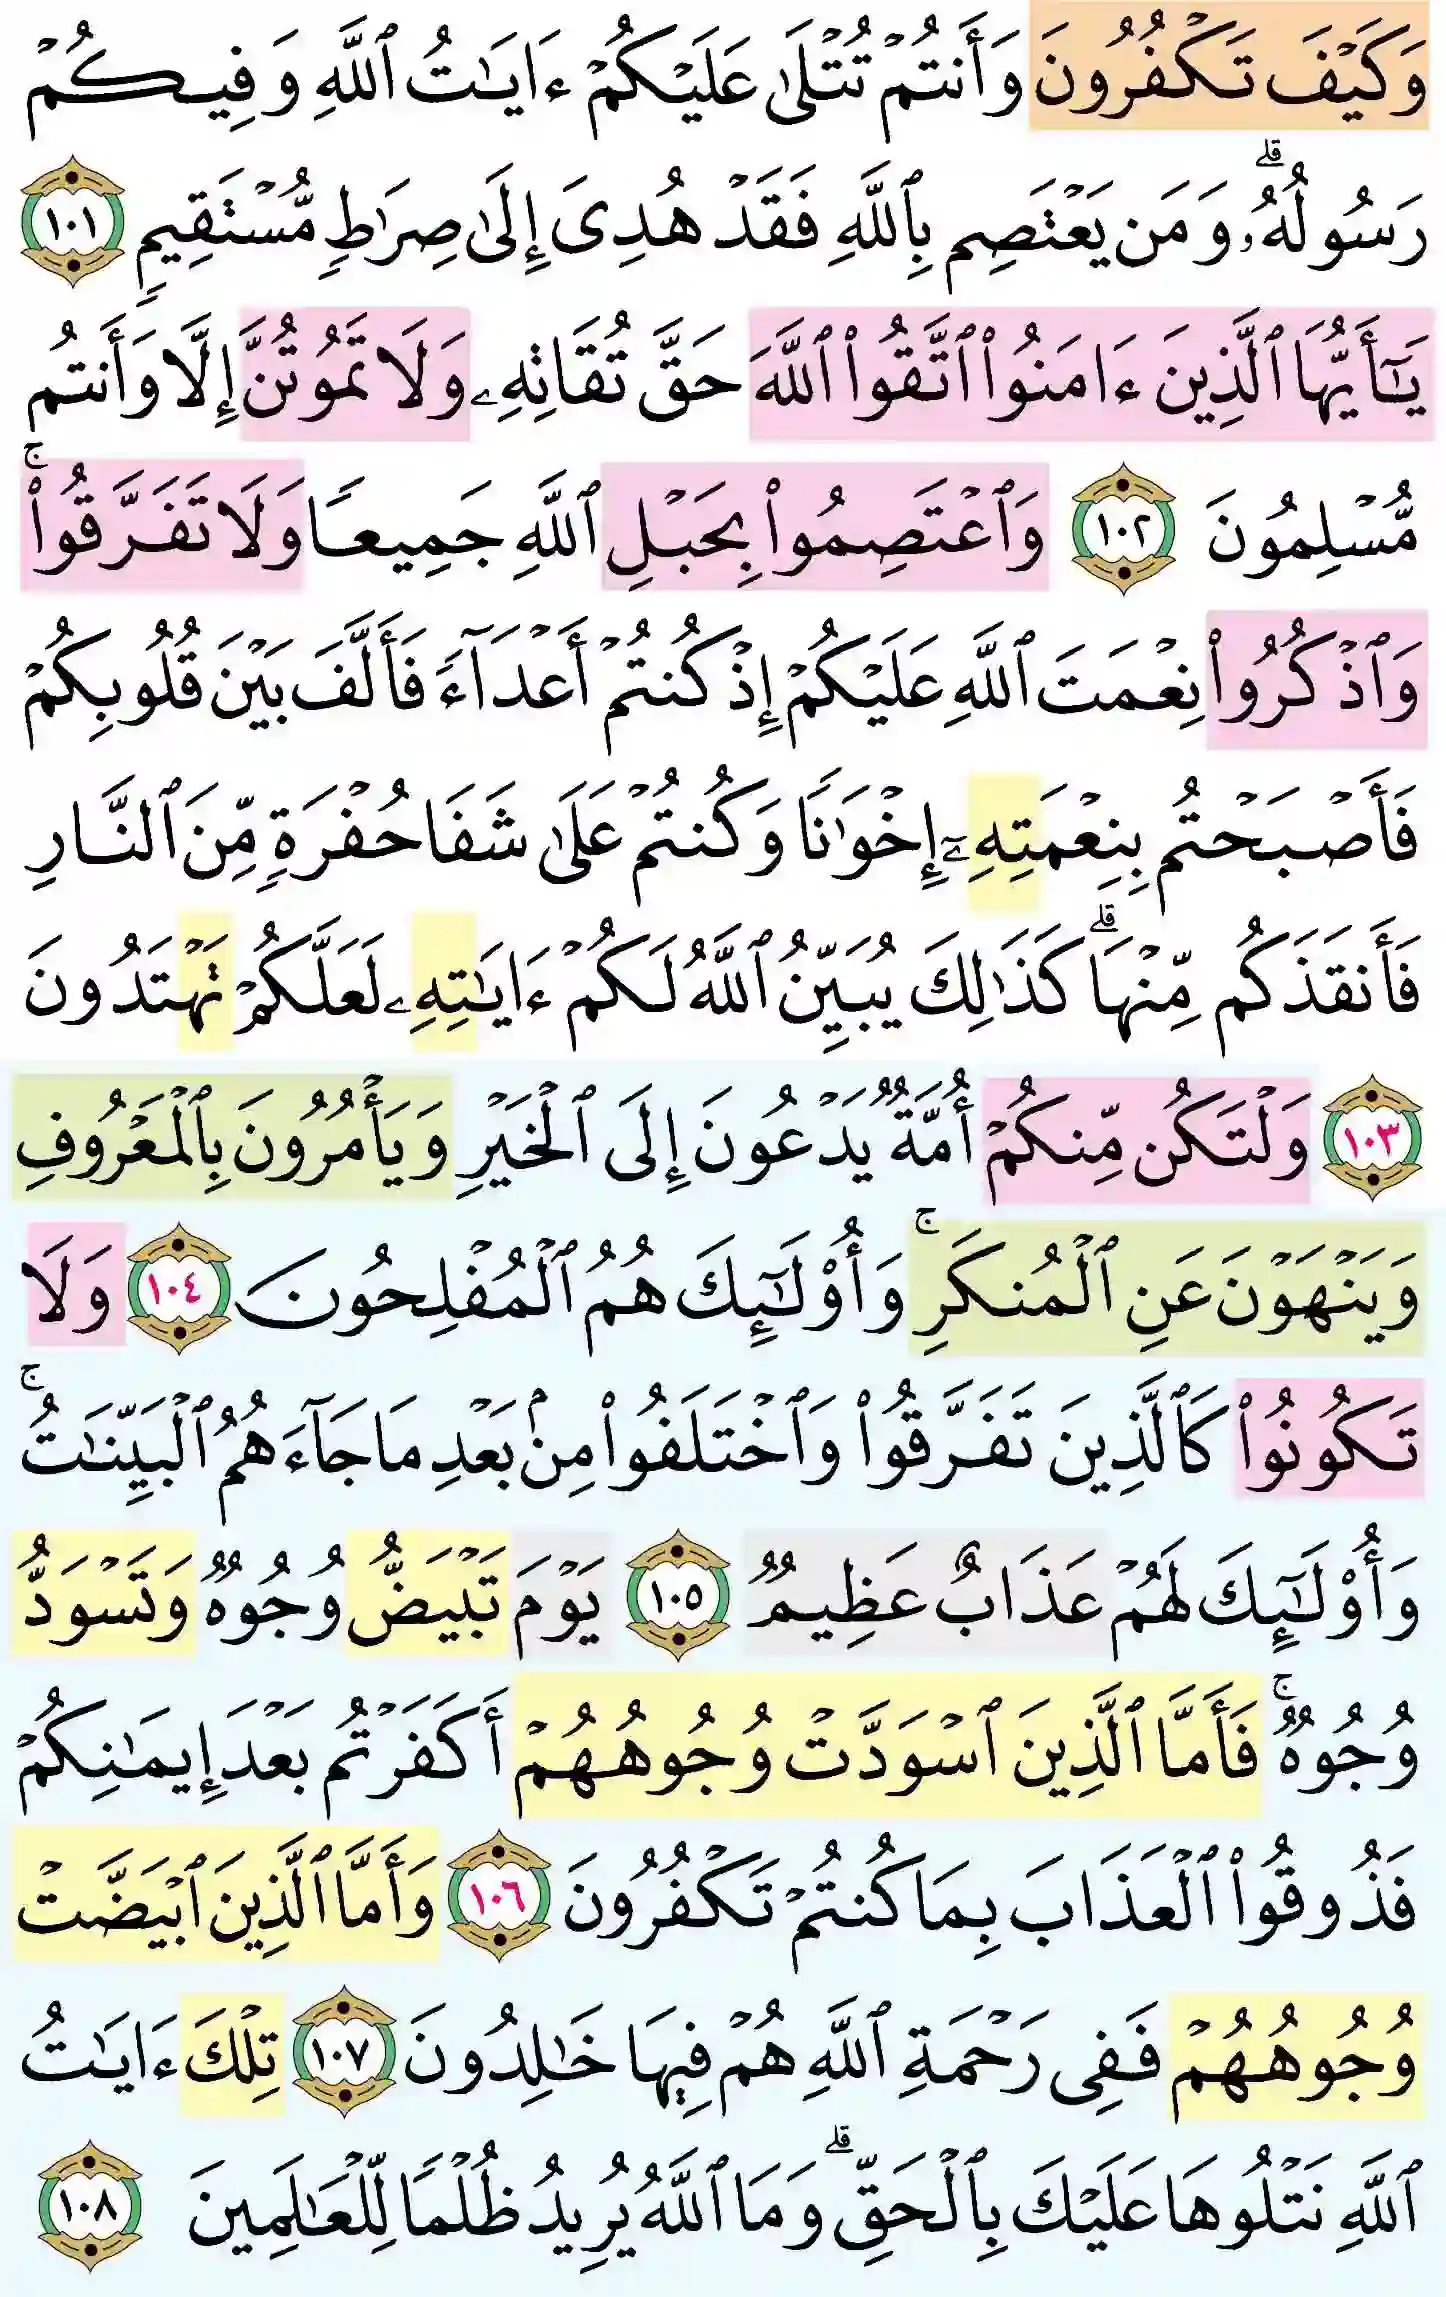 وَكَيْفَ تَكْفُرُونَ وَأَنتُمْ تُتْلَىٰ عَلَيْكُمْ ءَايَـٰتُ ٱللَّهِ وَفِيكُمْ
رَسُولُهُۥ ۗ وَمَن يَعْتَصِم بِٱللَّهِ فَقَدْ هُدِىَ إِلَىٰ صِرَٰطٍ مُّسْتَقِيمٍ ١٠١
يَـٰٓأَيُّهَا ٱلَّذِينَ ءَامَنُوا۟ ٱتَّقُوا۟ ٱللَّهَ حَقَّ تُقَاتِهِۦ وَلَا تَمُوتُنَّ إِلَّا وَأَنتُم
مُّسْلِمُونَ ١٠٢ وَٱعْتَصِمُوا۟ بِحَبْلِ ٱللَّهِ جَمِيعًا وَلَا تَفَرَّقُوا۟ ۚ
وَٱذْكُرُوا۟ نِعْمَتَ ٱللَّهِ عَلَيْكُمْ إِذْ كُنتُمْ أَعْدَآءً فَأَلَّفَ بَيْنَ قُلُوبِكُمْ
فَأَصْبَحْتُم بِنِعْمَتِهِۦٓ إِخْوَٰنًا وَكُنتُمْ عَلَىٰ شَفَا حُفْرَةٍ مِّنَ ٱلنَّارِ
فَأَنقَذَكُم مِّنْهَا ۗ كَذَٰلِكَ يُبَيِّنُ ٱللَّهُ لَكُمْ ءَايَـٰتِهِۦ لَعَلَّكُمْ تَهْتَدُونَ
١٠٣ وَلْتَكُن مِّنكُمْ أُمَّةٌ يَدْعُونَ إِلَى ٱلْخَيْرِ وَيَأْمُرُونَ بِٱلْمَعْرُوفِ
وَيَنْهَوْنَ عَنِ ٱلْمُنكَرِ ۚ وَأُو۟لَـٰٓئِكَ هُمُ ٱلْمُفْلِحُونَ ١٠٤ وَلَا
تَكُونُوا۟ كَٱلَّذِينَ تَفَرَّقُوا۟ وَٱخْتَلَفُوا۟ مِنۢ بَعْدِ مَا جَآءَهُمُ ٱلْبَيِّنَـٰتُ ۚ
وَأُو۟لَـٰٓئِكَ لَهُمْ عَذَابٌ عَظِيمٌ ١٠٥ يَوْمَ تَبْيَضُّ وُجُوهٌ وَتَسْوَدُّ
وُجُوهٌ ۚ فَأَمَّا ٱلَّذِينَ ٱسْوَدَّتْ وُجُوهُهُمْ أَكَفَرْتُم بَعْدَ إِيمَـٰنِكُمْ
فَذُوقُوا۟ ٱلْعَذَابَ بِمَا كُنتُمْ تَكْفُرُونَ ١٠٦ وَأَمَّا ٱلَّذِينَ ٱبْيَضَّتْ
وُجُوهُهُمْ فَفِى رَحْمَةِ ٱللَّهِ هُمْ فِيهَا خَـٰلِدُونَ ١٠٧ تِلْكَ ءَايَـٰتُ
ٱللَّهِ نَتْلُوهَا عَلَيْكَ بِٱلْحَقِّ ۗ وَمَا ٱللَّهُ يُرِيدُ ظُلْمًا لِّلْعَـٰلَمِينَ ١٠٨